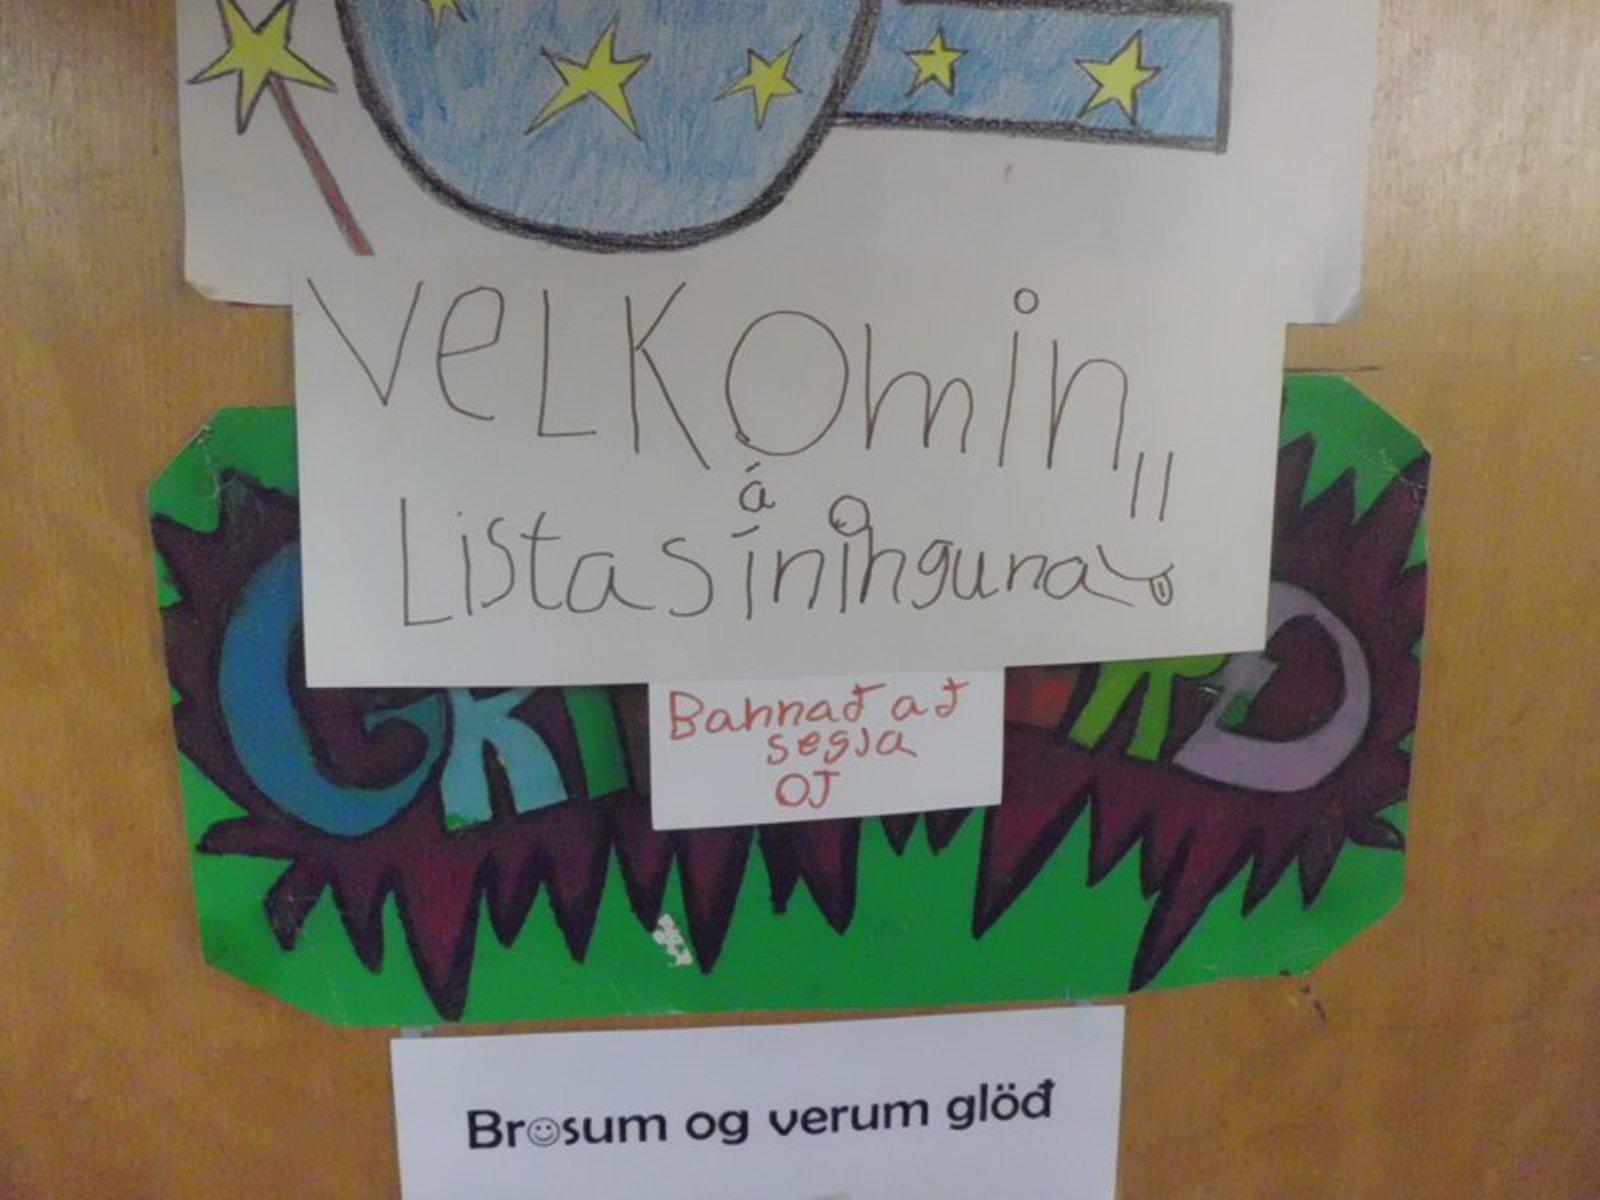 VELKOmin
á
Listasíninguna
Bannað að
segja
OJ
Brosum og verum glöð